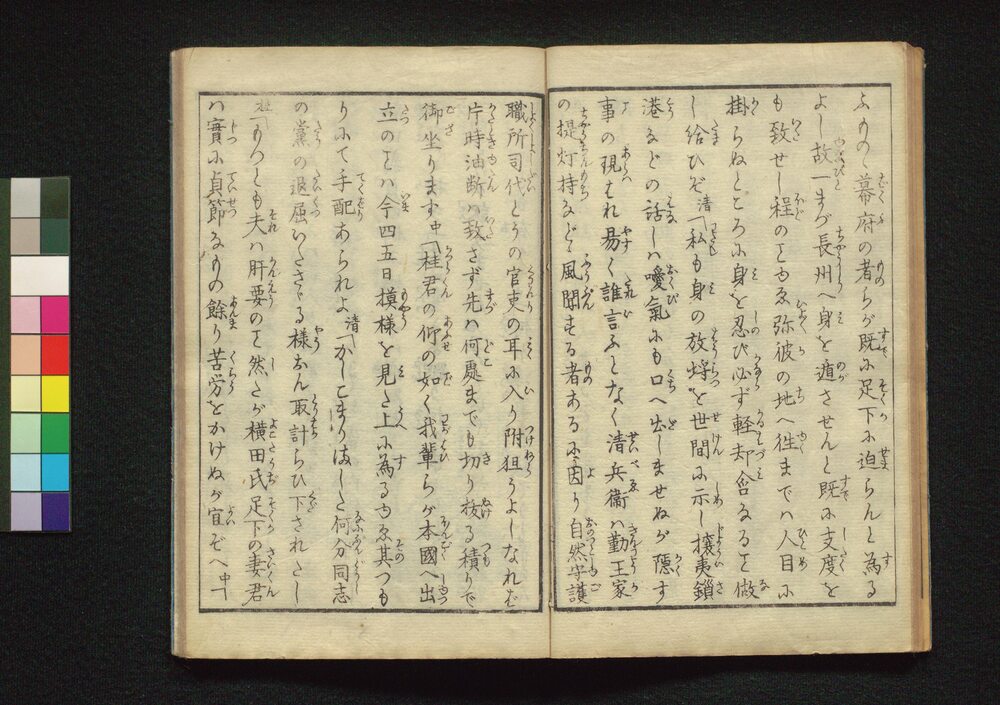 ふものゝ幕府の者らが既に足下に迫らんと為る
よし故一まづ長州へ身を遁させんと既に支度を
も致せし程のことゆゑ弥彼の地へ徃までハ人目に
掛らぬところに身を忍び必ず軽却含なること做
し給ひぞ清「私も身の放埓を世間に示し攘夷鎖
港などの話しハ噯氣にも口へ出しませぬが隠す
事の現はれ易く誰言ふとなく清兵衞ハ勤王家
の提灯持など風聞する者あるに因り自然守護
職所司代とうの官吏の耳に入り附狙うよしなれば
片時油断ハ致さず先ハ何處までも切り抜る積りで
御坐ります中「桂君の仰の如く我輩らが本國へ出
立のことハ今四五日模様を見た上に為るゆゑ其つも
りにて手配あられよ清「かしこまりました何分同志
の黨の退屈いたさゞる様なん取計らひ下されたし
桂「もつとも夫ハ肝要のこと然だが横田氏足下の妻君
ハ實に貞節なもの餘り苦労をかけぬが宜ぞへ中「